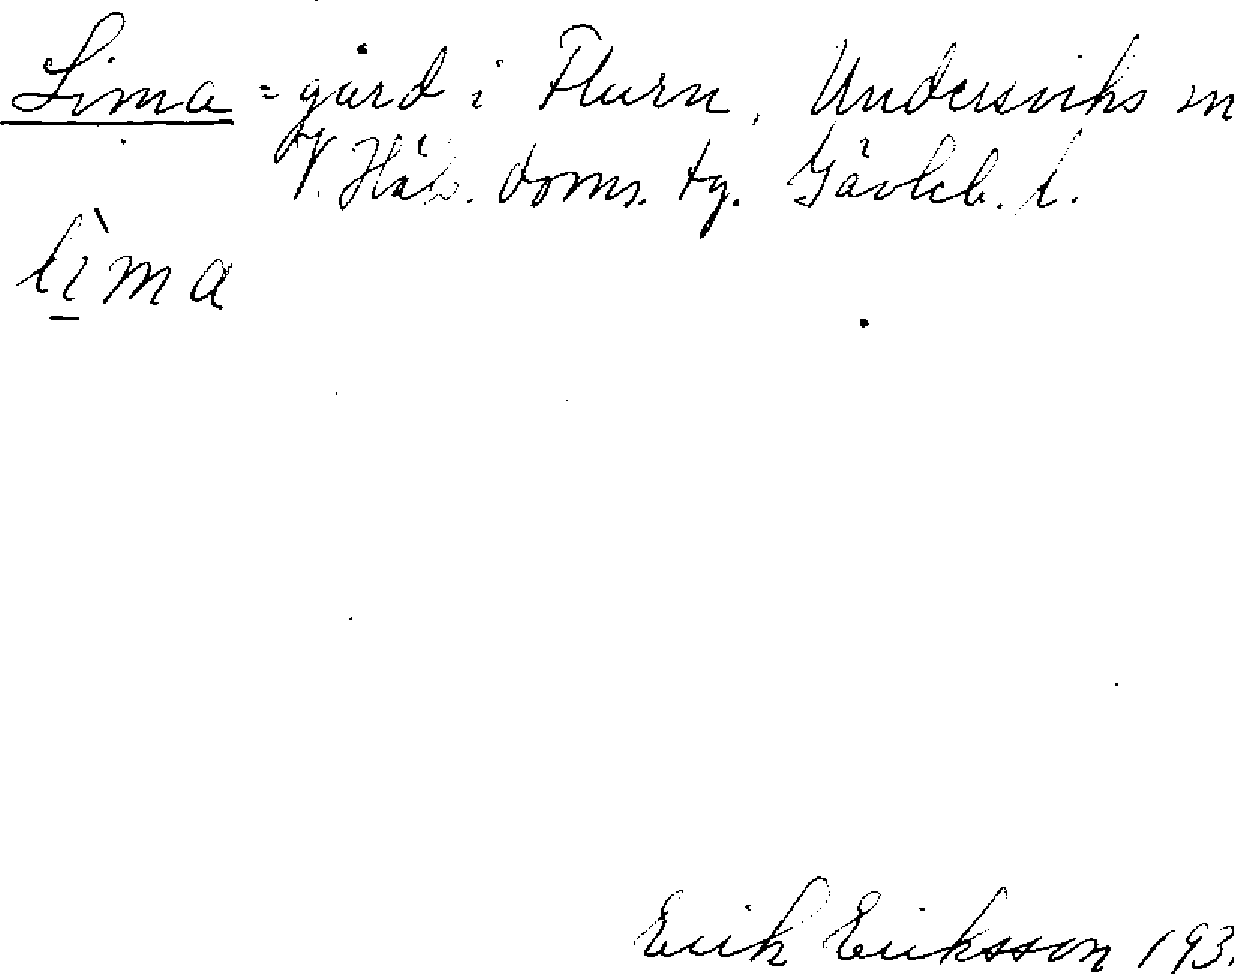 Lima = gård i Flurn, Undersviks
V. Häls. doms. tg. Gävleb. l.
lìma
Erik Eriksson 193